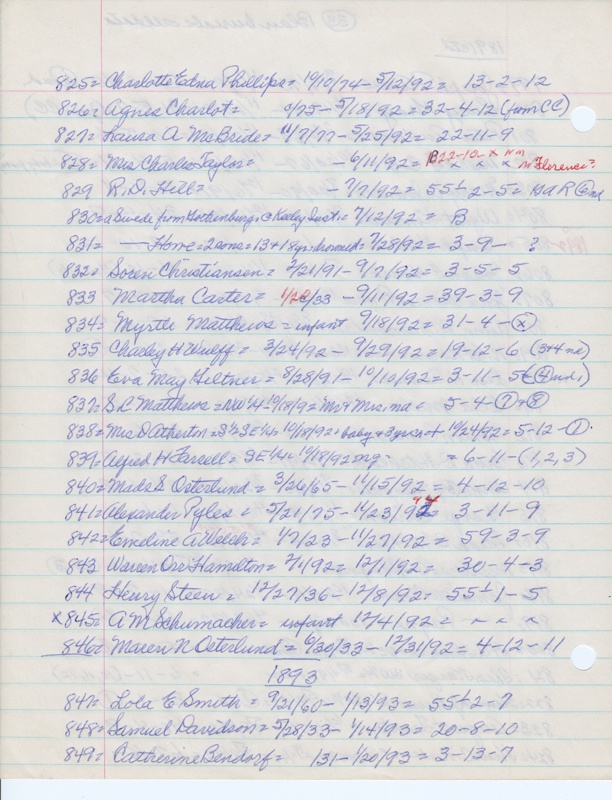 825 = Charlotte Edna Phillips = 10/10/74 - 5/12/92 = 13-2-12
826 = Agnes Charlot = 0/75 - 5/18/92 = 32-4-12 (from CC)
827 = Laura A McBride = 11/7/77 - 5/25/92 = 22-11-9
828 = Mrs Charles Taylor = - 6/11/92 = B 22-10- x x x Florence?
829 R. D. Hill = - 7/7/92 = 55½ 2-5 = G A R
830 = a Swede from Gottenburg, c Keeley Inst. = 7/12/92 = B
831 = — Home = 2 sons = 13 + 18 yrs. drowned = 7/28/92 = 3-9- ?
832 = Soren Christiansen = 2/21/91 - 9/7/92 = 3-5-5
833 Martha Carter = 1/20/33 - 9/11/92 = 39-3-9
834 = Myrtle Matthews = infant 9/18/92 = 31-4-(x)
835 Charley H Wulff = 3/24/92 - 9/29/92 = 19-12-6 (3+4 nd)
836 Eva May Hiltner = 8/28/91 - 10/10/92 = 3-11-5
837 = S L Matthews = NW¼ 10/18/92 = Mr + Mrs, ma = 5-4-
838 = Mrs D Atherton = S½ SE¼ = 10/18/92 = baby + 3 yrs old 10/24/92 = 5-12-(1)
839 = Alfred H Ferrell = SE¼ = 10/18/92 mg. = 6-11-(1,2,3)
840 = Mads S Osterlund = 3/26/65 - 11/15/92 = 4-12-10
841 = Alexander Pyles = 5/21/75 - 11/23/92 = 3-11-9
842 = Emeline A Welch = 1/7/23 - 11/27/92 = 59-3-9
843 Warren Orr Hamilton = 2/1/92 = 12/1/92 = 30-4-3
844 Henry Steen = 12/27/36 - 12/8/92 = 55½ 1-5
x 845 = A M Schumacher = infant 12/4/92 = - - -
846 = Maren N Osterlund = 6/30/33 - 12/31/92 = 4-12-11
1893
847 = Lola E Smith = 9/21/60 - 1/13/93 = 55½-2-7
848 = Samuel Davidson = 5/28/33 - 1/14/93 = 20-8-10
849 = Catherine Bendorf = 131 - 1/20/93 = 3-13-7